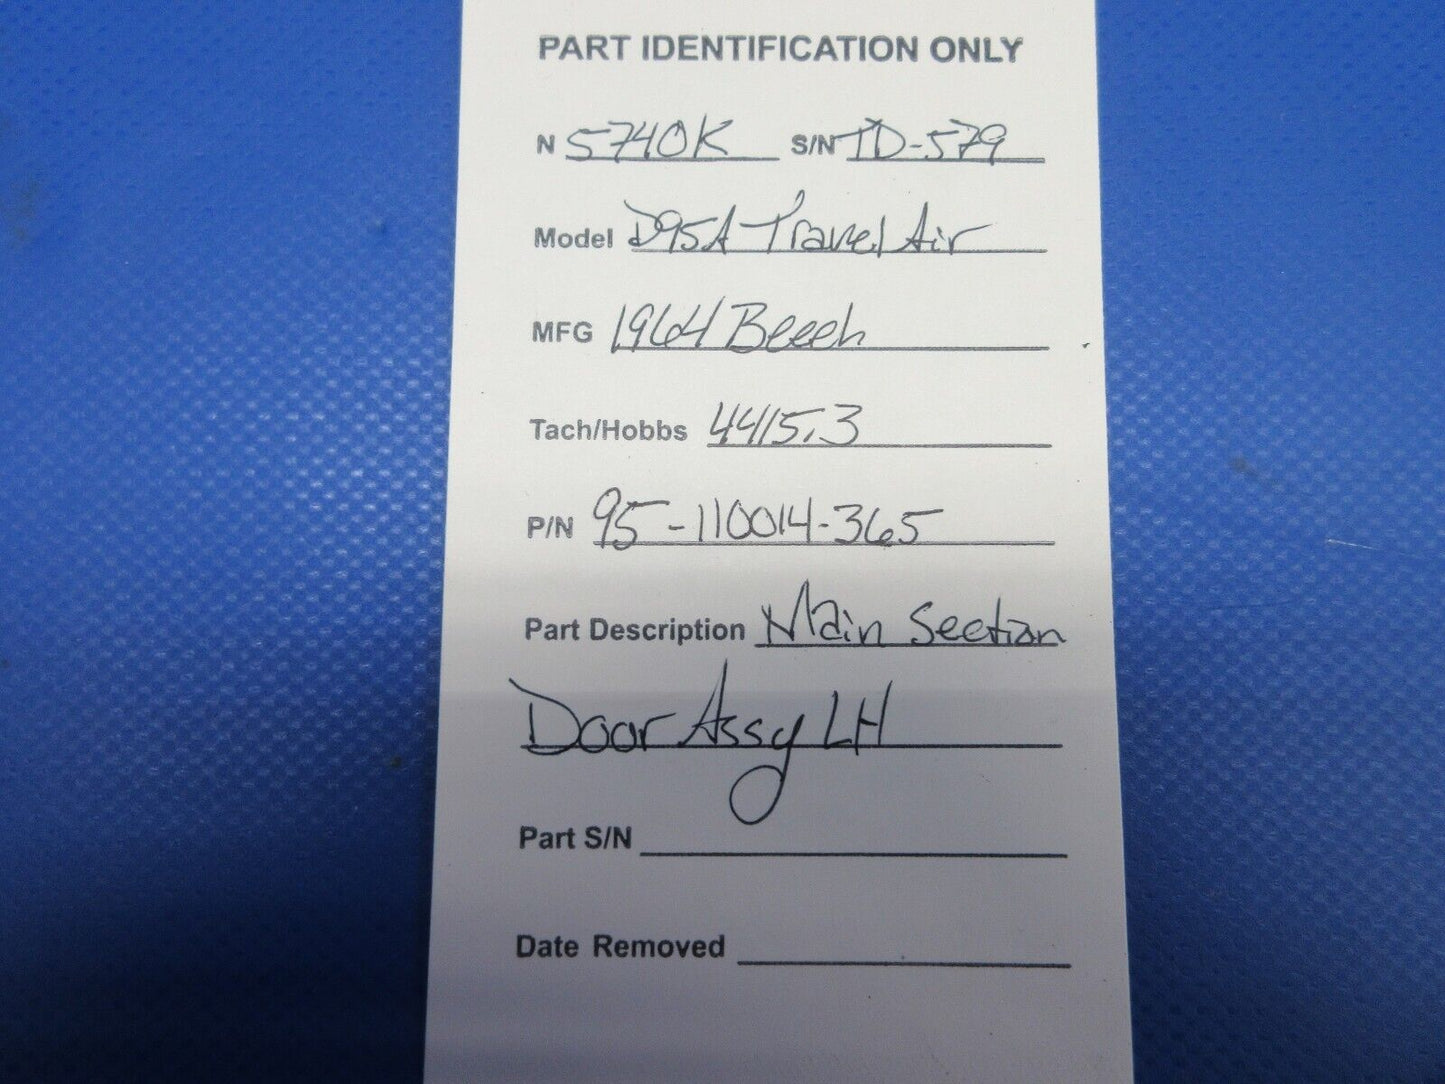 PART IDENTIFICATION ONLY
N 5740K S/N TD-579
Model D95A Travel Air
MFG 1964 Beech
Tach/Hobbs 4415.3
P/N 95-110014-365
Part Description Main Section
Door Assy LH
Part S/N
Date Removed